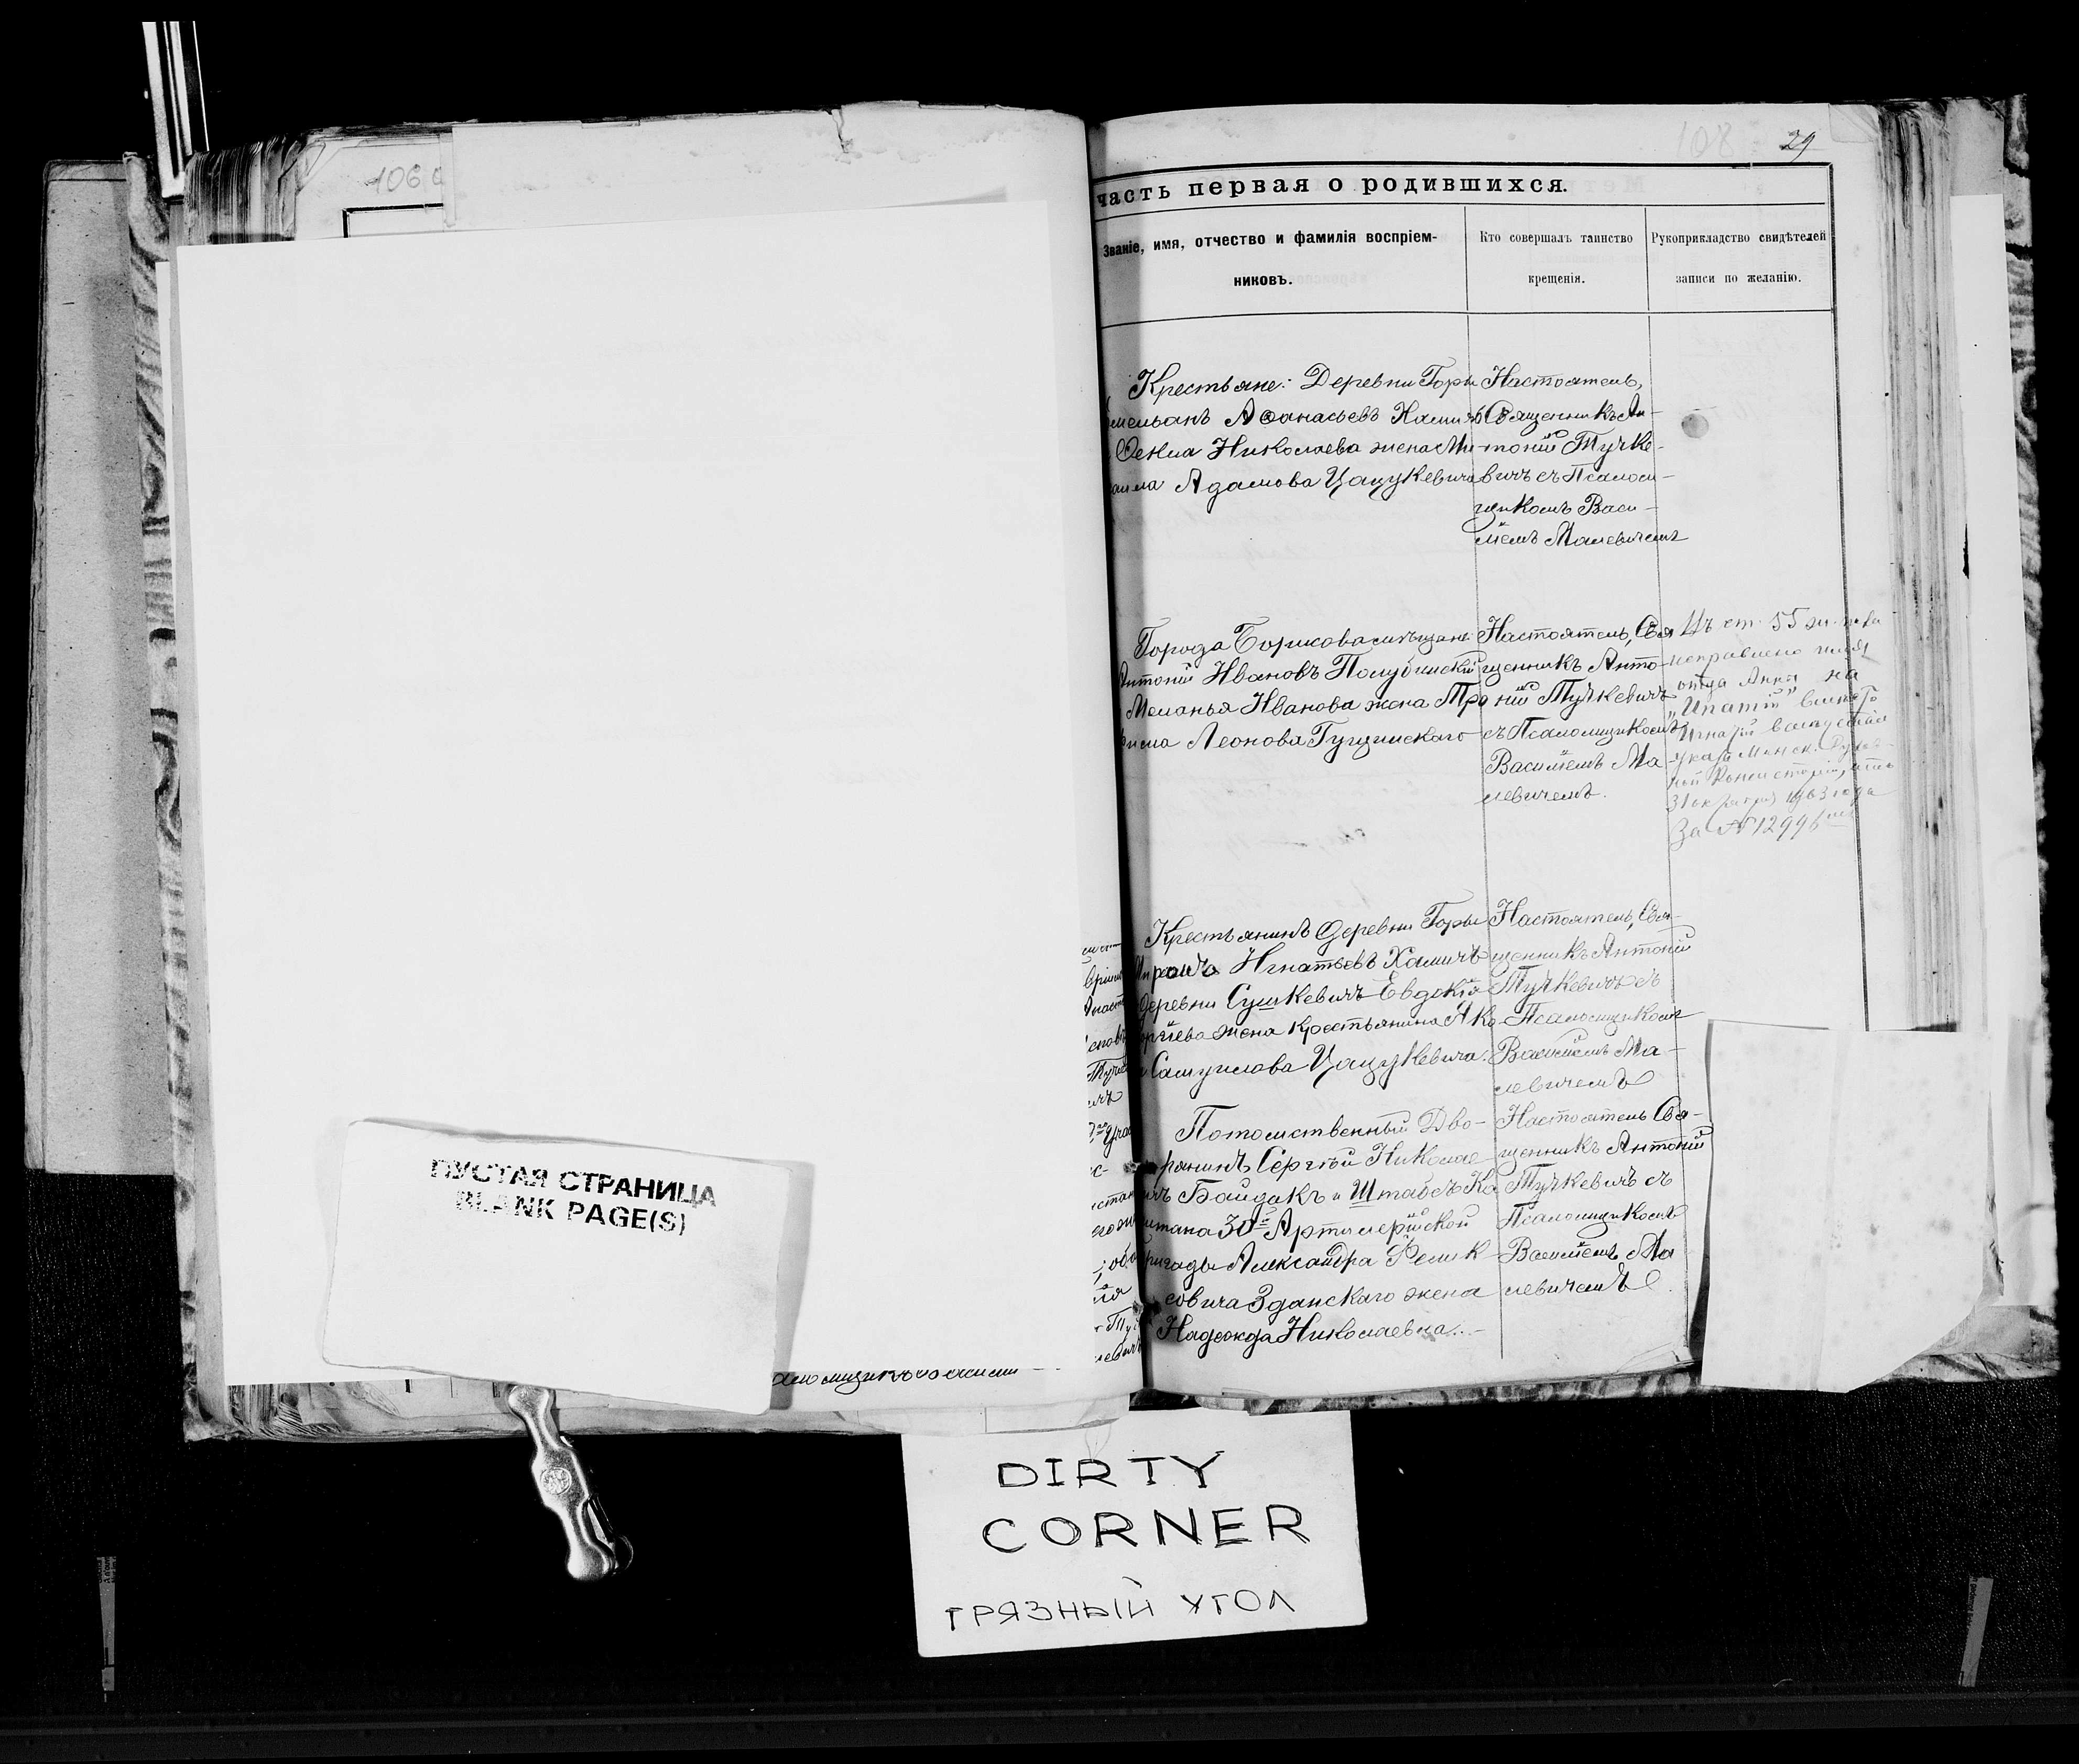 106
108
29
часть первая о родившихся.
Званіе, имя, отчество и фамилія воспріем-
никовъ.
Кто совершалъ таинство
крещенія.
Рукоприкладство свидѣтелей
записи по желанію.
Крестьяне: Деревни Горы
Аѳанасьевъ
Ѳекла Николаева жена Ми-
Адамова Цацукевича
Настоятель,
Священникъ Ан-
тоній Тучке-
вичъ съ Псалом-
щикомъ Васи-
ліемъ Малевичемъ
Города Борисова мѣщане
Антоній Ивановъ
Меланья Ивановна жена Тро
фима Леонова Гущинскаго
Настоятель, Свя
щенникъ Анто-
ній Тучкевичъ
съ Псаломщикомъ
Василіемъ Ма
левичемъ.
Въ ст. 55
исправлено имя
отца Анны на
„Ипатій" вмѣсто
Игнатій вслѣдствіе
указа Минск. Духов-
ной Консисторіи, отъ
31 октября 1903 года
За №12996
Крестьянинъ деревни Горы
Игнатьевъ Хамичъ
деревни Сушкевичъ Евдокія
жена крестьянина Яко
Самуилова Цацукевича.
Настоятель, Свя-
щенникъ Антоній
Тучкевичъ съ
Псаломщикомъ
Василіемъ Ма-
левичемъ
Потомственный Дво-
рянинъ Сергѣй Николае
вичъ Байдакъ и Штабсъ Ка
питана 30й Артилерійской
бригады Александра Фелик
совича Зданскаго жена
Надежда Николаевна.
Настоятель Свя-
щенникъ Антоній
Тучкевичъ съ
Псаломщикомъ
Василіемъ Ма
левичемъ
ПУСТАЯ СТРАНИЦА
BLANK PAGE(S)
DIRTY
CORNER
ГРЯЗНЫЙ УГОЛ